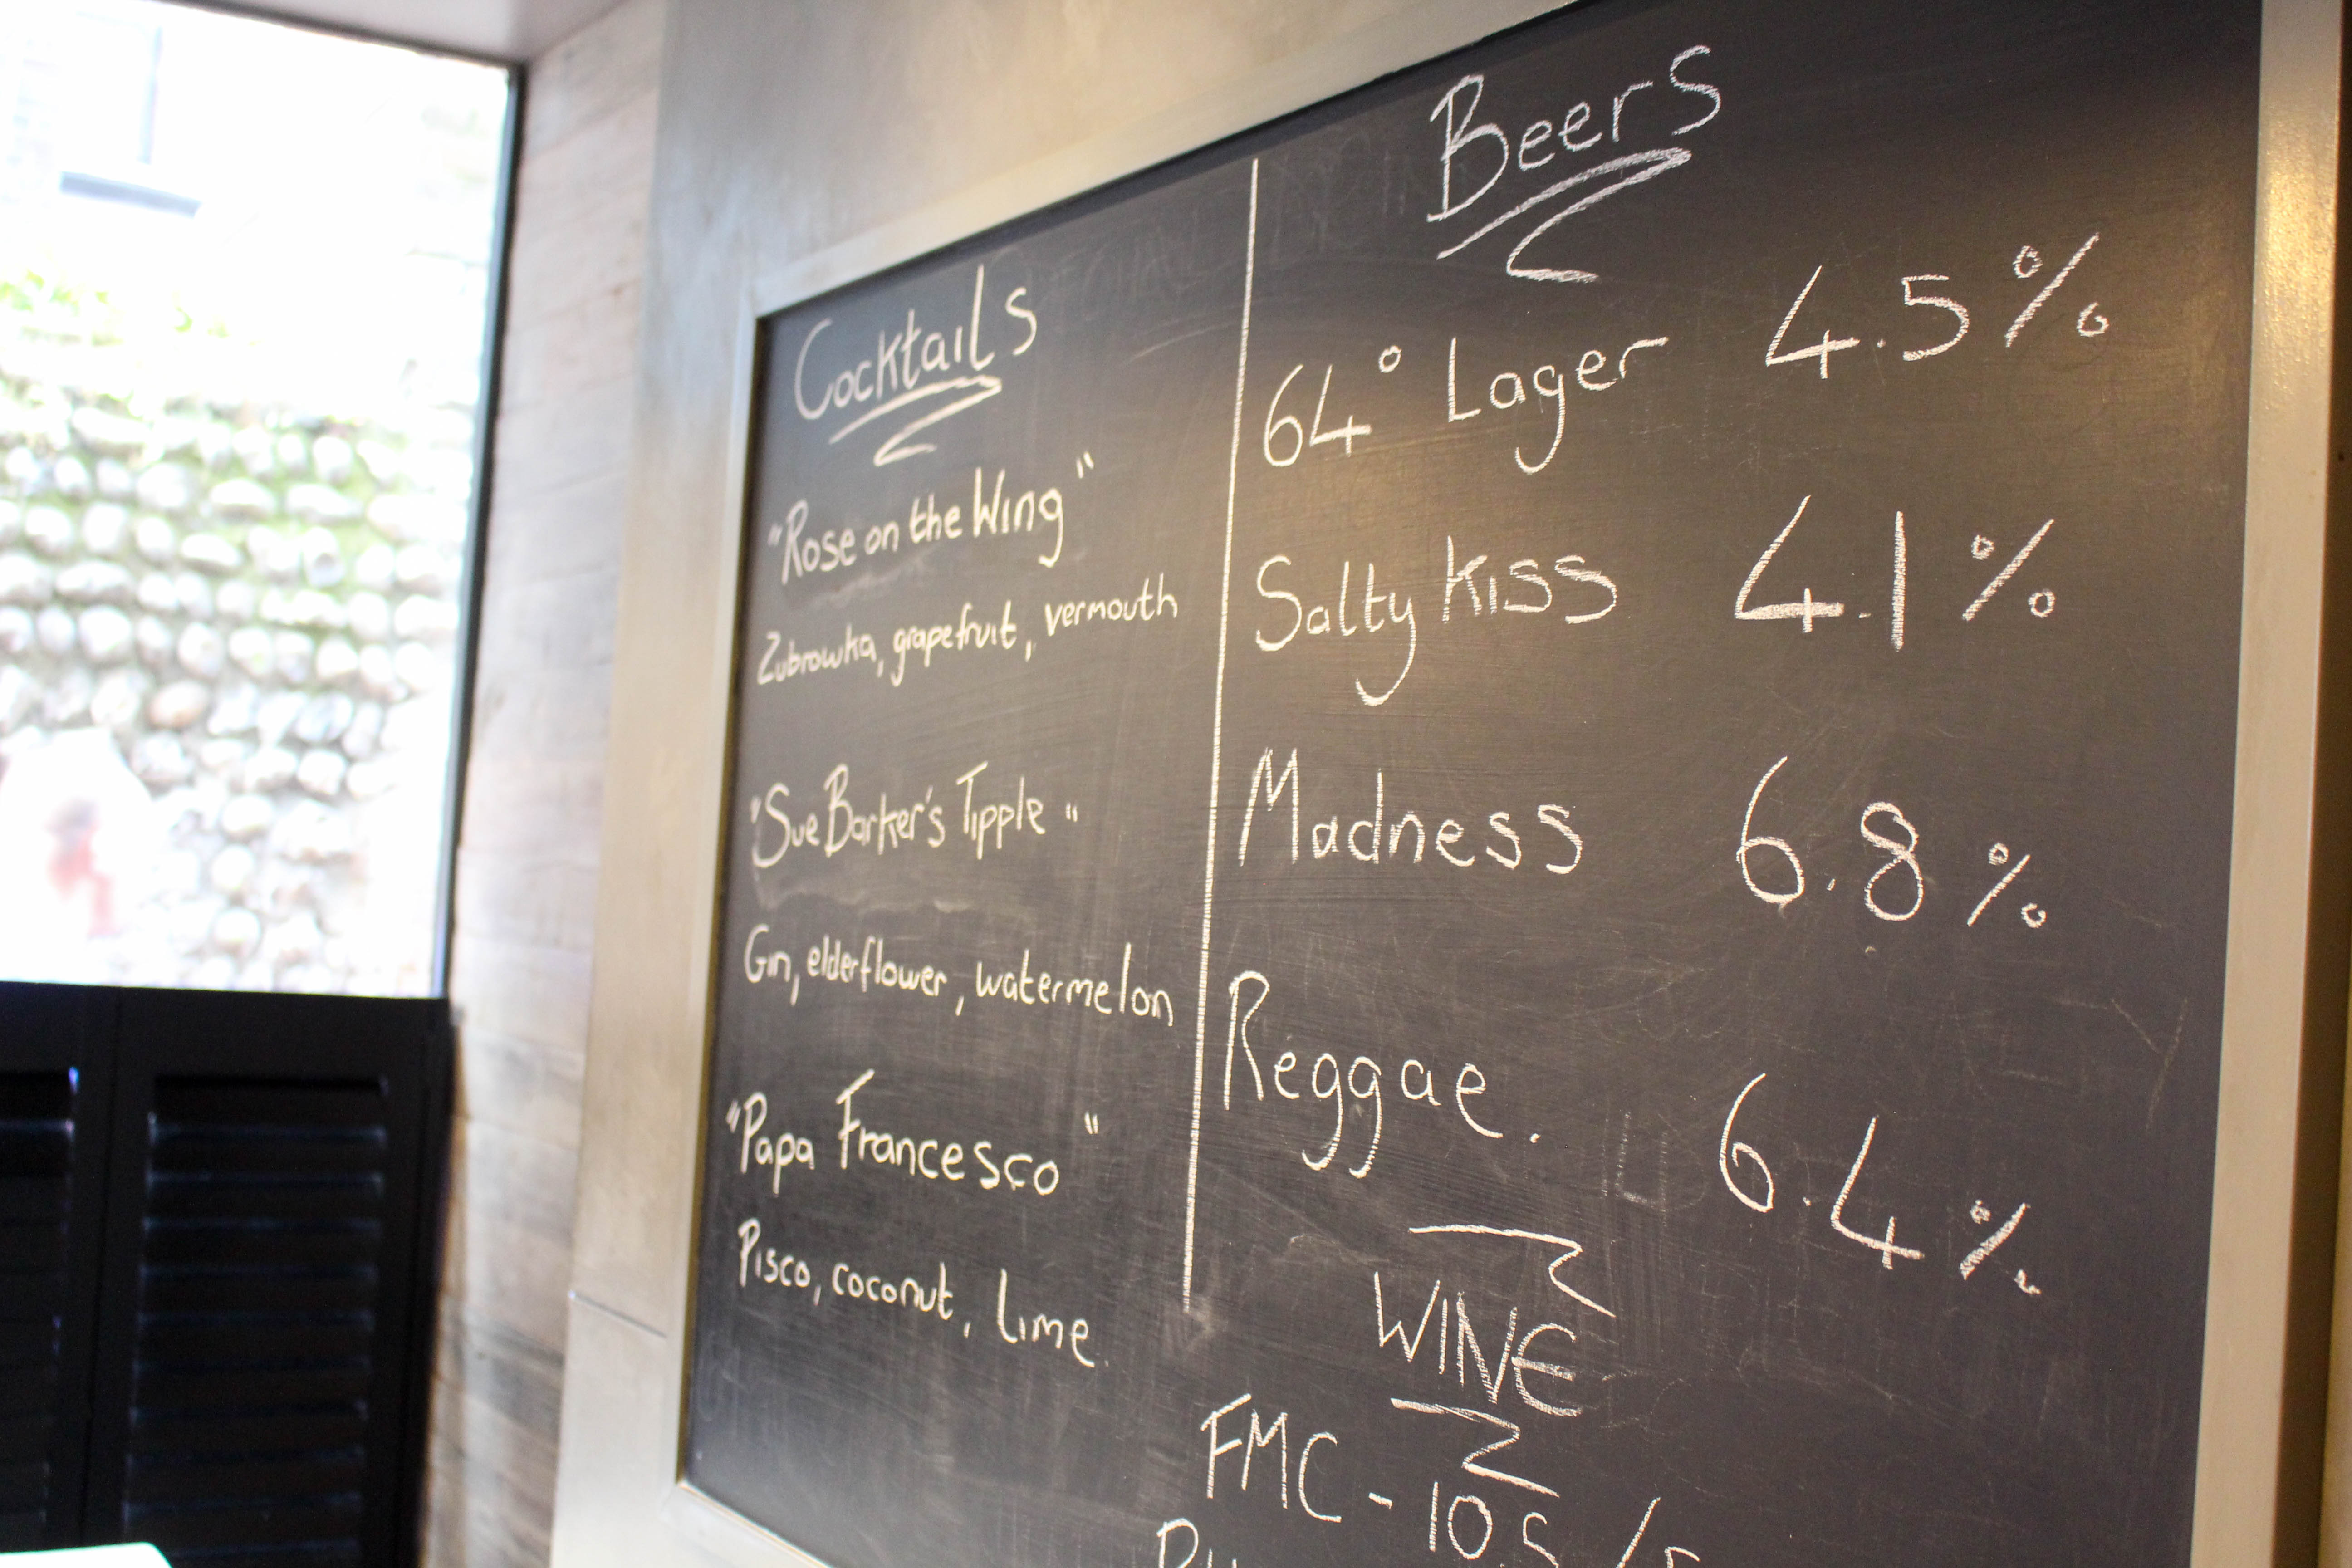 Cocktails
"Rose on the Wing"
Zubrowka, grapefruit, vermouth
"Sue Barker's Tipple"
Gin, elderflower, watermelon
"Papa Francesco"
Pisco, coconut, lime.
Beers
64° Lager 4.5%
Salty Kiss 4.1%
Madness 6.8%
Reggae. 6.4%
WINE
FMC - 10.5